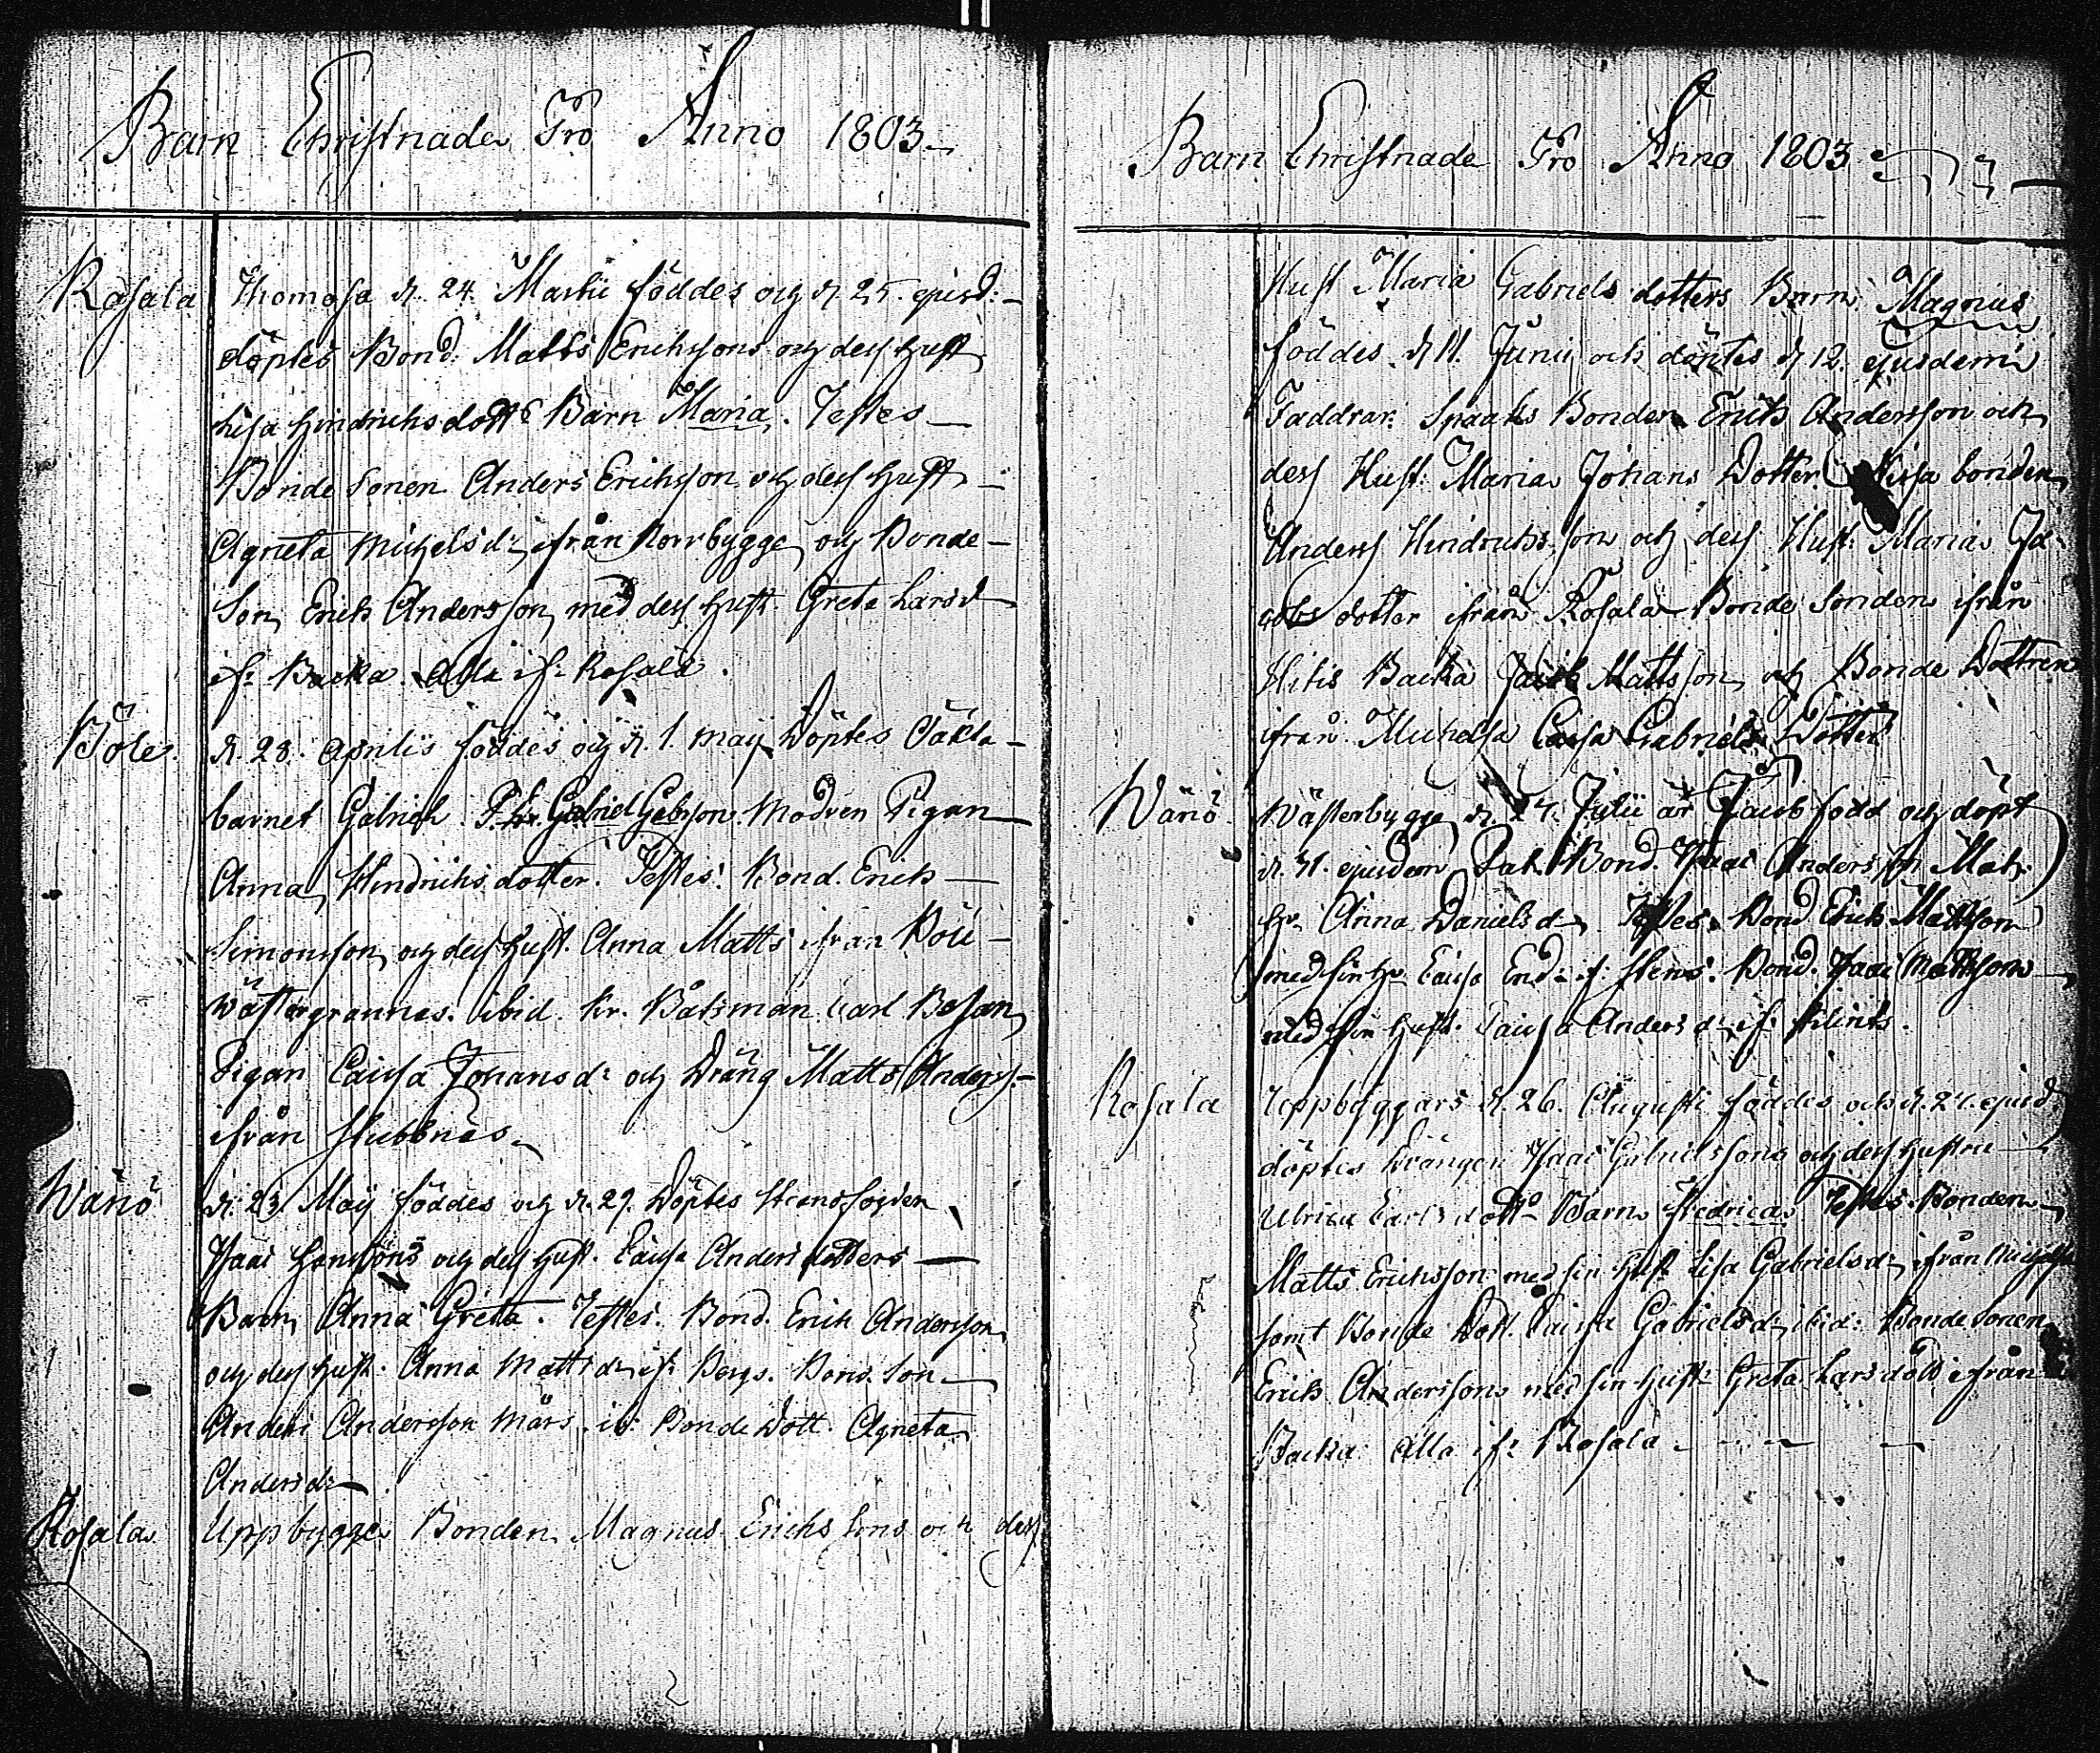 Barn Christnade Pro Anno 1803
Rosala Thomasa d. 24. Martii föddes och d. 25. ejusd:
döptes Bond. Matts Erichssons och dess Hust
Lisa Hindrichsdott:s Barn Maria. Testes
Bonde Sonen Anders Erichsson och dess Hust
Agneta Michelsd: ifrån Norrbygge och Bonde
Son Erich Andersson med dess Hust. Greta Larsd
if: Backa. Alla if: Rosala.
Böle. d. 28. Aprilis föddes och d. 1. Maij Döptes Oäkta
barnet Gabriel Gabriel Gabrson Modren Pigan
Anna Hindrichs dotter. Testes: Bond. Erich
Simonsson och dess Hust. Anna Matts ifrån Böle
Wästergrannas. ibid. Kr. Båtzman Carl Bosan
Pigan Caisa Johans d: och Dräng Matts Anderss:
ifrån Stubbnäs.
Wänö d. 23 Maij föddes och d. 29. Döptes
Isaac och dess Hust. Caisa Anders dotters
Barn Anna Greta. Testes. Bond. Erich Andersson
och dess Hust. Anna Matts d: if: Bergs. Bond. Son
Anders Andersson Mårs ib: Bonde Dott. Agneta
Anders d:
Rosala Uppbygge Bonden Magnus Erichs Sons och dess
Barn Christnade Pro Anno 1803
Hust Maria Gabriels dotters Barn Magnus
föddes d 11. Junii och döptes d 12. ejusdem
Faddrar: Bonden Erich Andersson och
dess Hust: Maria Johans Dotter. bonden
Anders Hindrichsson och dess Hust: Maria Ja
cobs dotter ifrån Rosala Bonde Sonden ifrån
Hitis Backa Jacob Mattsson och Bonde Dottren
ifrån Michelsa Caisa Gabriels Dotter
Wänö Wästerbygge d. 27. Julii är Jacob född och döpt
d. 31. ejusdem Pat. Bond. Isaac Andersson Mat.
hr: Anna Daniels d: Testes. Bond Erich Mattsson
med sin hr Caisa if: Stens. Bond. Isaac Mattsson
med sin Hust. Caisa Anders d: if: Klints.
Rosala Uppbyggars d. 26. Augusti föddes och d. 27. ejusd
döptes Drängen Isaac Gabrielssons och dess Hustru
Ulrica Carls dott:s Barn Fredrica Testes. Bonden
Matts Erichsson med sin Hust Lisa Gabrielsd: ifrån Michelsa
samt Bonde Dott. Caisa Gabrielsd: ibid: Bonde Sonen
Erich Anderssons med sin Hust: Greta Larsdott ifrån
Backa Alla if: Rosala